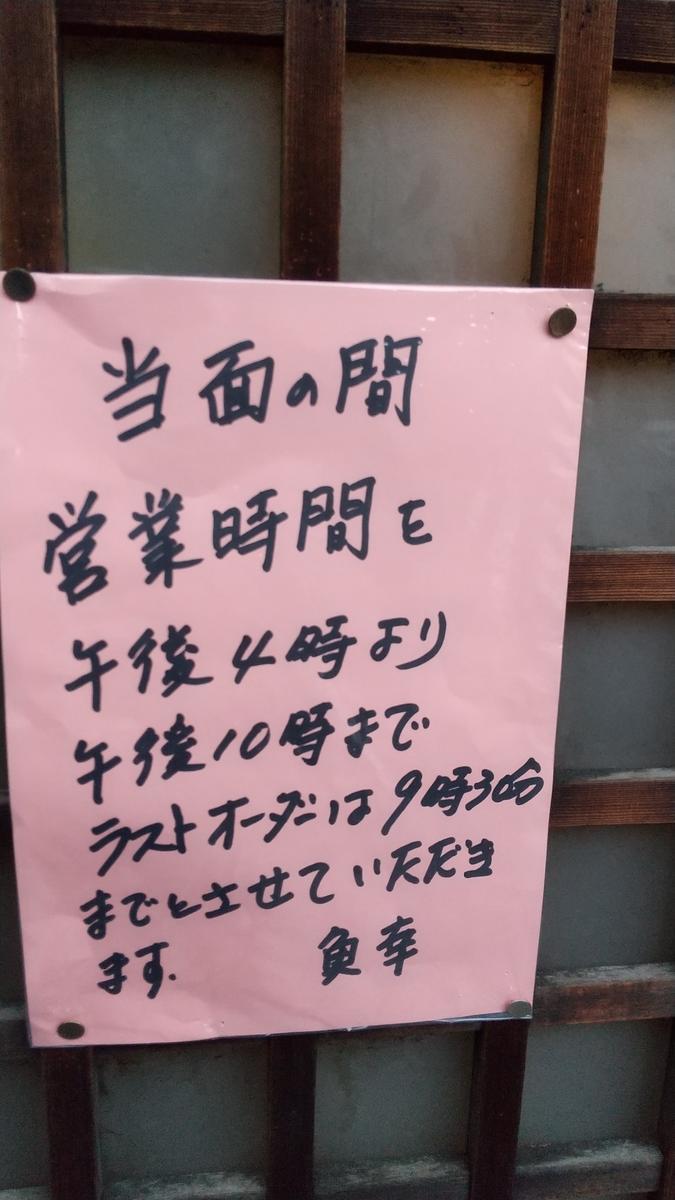 当面の間
営業時間を
午後4時より
午後10時まで
ラストオーダーは9時30分
までとさせていただき
ます.
魚幸